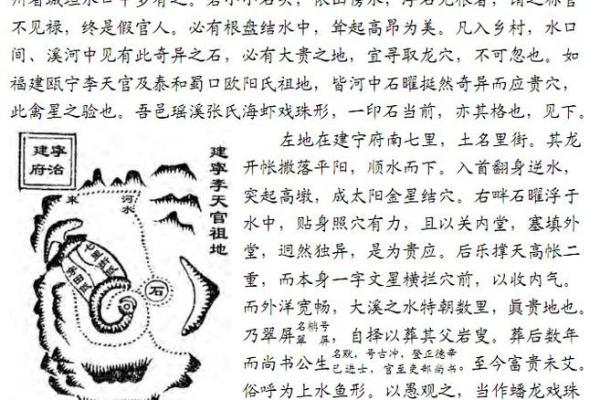 不见禄，终是假官人。必有根盘结水中，耸起高昂为美。凡入乡村，水口
间、溪河中见有此奇异之石，必有大贵之地，宜寻取龙穴，不可忽也。如
福建瓯宁李天官及泰和蜀口欧阳氏祖地，皆河中石曜挺然奇异而应贵穴，
此禽星之验也。吾邑瑶溪张氏海虾戏珠形，一印石当前，亦其格也，见下。
建寧府治
東
河水
石
建寧李天官祖地
左地在建宁府南七里，土名里街。其龙
开帐撒落平阳，顺水而下。入首翻身逆水，
突起高墩，成太阳金星结穴。右畔石曜浮于
水中，贴身照穴有力，且以关内堂，塞填外
堂，迥然独异，是为贵应。后乐撑天高帐二
重，而本身一字文星横拦穴前，以收内气。
而外洋宽畅，大溪之水特朝数里，真贵地也。
乃翠屏 号翠屏，自择以葬其父岩叟。葬后数年
而尚书公生名默，号古冲，登正德辛巳进士，官至吏部尚书。至今富贵未艾。
俗呼为上水鱼形。以愚观之，当作蟠龙戏珠